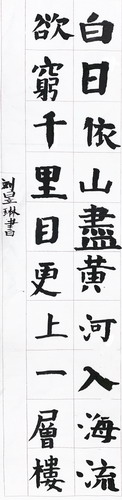 白日依山盡黃河入海流
欲窮千里目更上一層樓
刘昱琳書